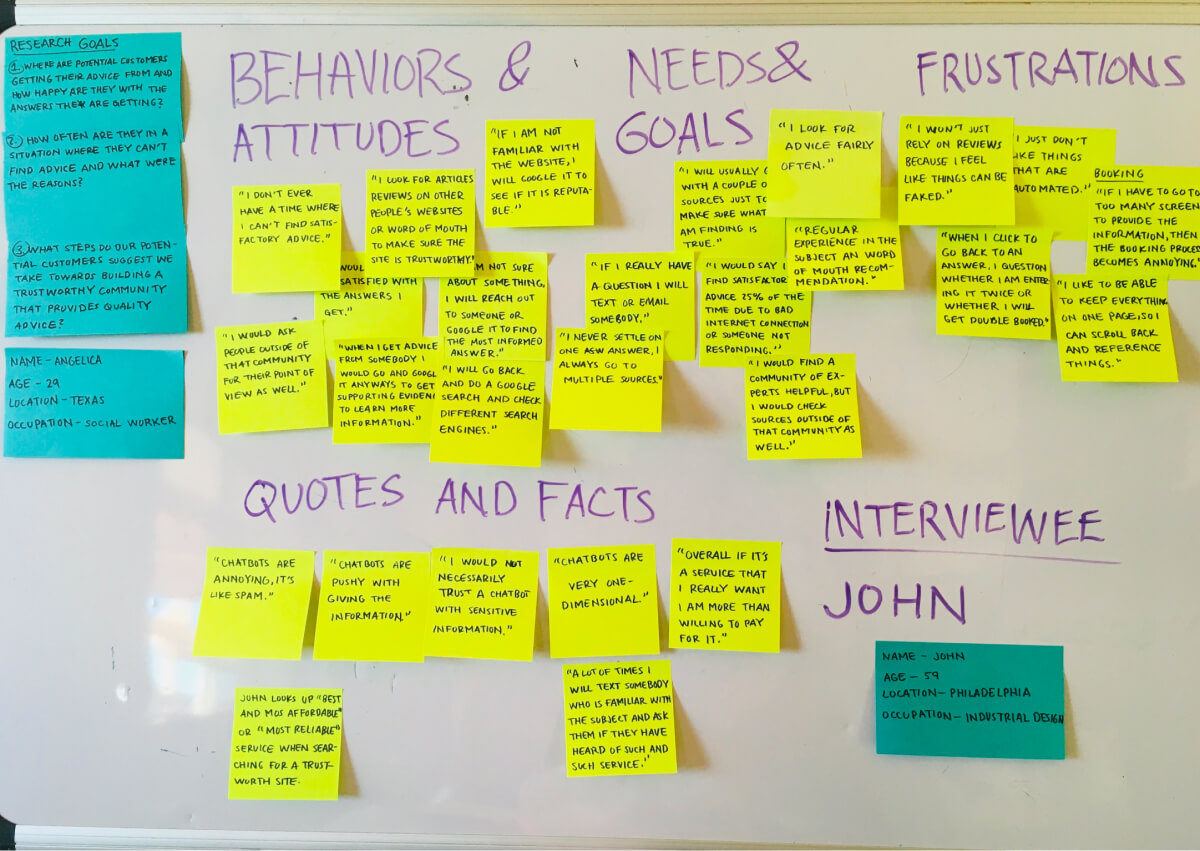 RESEARCH GOALS
1. WHERE ARE POTENTIAL CUSTOMERS
GETTING THEIR ADVICE FROM AND
HOW HAPPY ARE THEY WITH THE
ANSWERS THEY ARE GETTING?
2. HOW OFTEN ARE THEY IN A
SITUATION WHERE THEY CAN'T
FIND ADVICE AND WHAT WERE
THE REASONS?
3. WHAT STEPS DO OUR POTEN-
TIAL CUSTOMERS SUGGEST WE
TAKE TOWARDS BUILDING A
TRUSTWORTHY COMMUNITY
THAT PROVIDES QUALITY
ADVICE?
NAME - ANGELICA
AGE - 29
LOCATION - TEXAS
OCCUPATION - SOCIAL WORKER
BEHAVIORS &
ATTITUDES
"I DON'T EVER
HAVE A TIME WHERE
I CAN'T FIND SATIS-
FACTORY ADVICE."
"I LOOK FOR ARTICLES
REVIEWS ON OTHER
PEOPLE'S WEBSITES
OR WORD OF MOUTH
TO MAKE SURE THE
SITE IS TRUSTWORTHY."
"IF I AM NOT
FAMILIAR WITH
THE WEBSITE, I
WILL GOOGLE IT TO
SEE IF IT IS REPUTA-
BLE."
WOULD
SATISFIED WITH
THE ANSWERS I
GET."
M NOT SURE
ABOUT SOMETHING,
I WILL REACH OUT
TO SOMEONE OR
GOOGLE IT TO FIND
THE MOST INFORMED
ANSWER."
"I WOULD ASK
PEOPLE OUTSIDE OF
THAT COMMUNITY
FOR THEIR POINT OF
VIEW AS WELL."
"WHEN I GET ADVICE
FROM SOMEBODY I
WOULD GO AND GOOGL
IT ANYWAYS TO GET
SUPPORTING EVIDENC
TO LEARN MORE
INFORMATION."
"I WILL GO BACK
AND DO A GOOGLE
SEARCH AND CHECK
DIFFERENT SEARCH
ENGINES."
NEEDS &
GOALS
"I WILL USUALLY G
WITH A COUPLE O
SOURCES JUST TO
MAKE SURE WHAT
AM FINDING IS
TRUE."
"I LOOK FOR
ADVICE FAIRLY
OFTEN."
"REGULAR
EXPERIENCE IN THE
SUBJECT AN WORD
OF MOUTH RECOM-
MENDATION."
"IF I REALLY HAVE
A QUESTION I WILL
TEXT OR EMAIL
SOMEBODY."
"I WOULD SAY I
FIND SATISFACTOR
ADVICE 25% OF THE
TIME DUE TO BAD
INTERNET CONNECTION
OR SOMEONE NOT
RESPONDING."
"I NEVER SETTLE ON
ONE ANSWER, I
ALWAYS GO TO
MULTIPLE SOURCES."
"I WOULD FIND A
COMMUNITY OF EX-
PERTS HELPFUL, BUT
I WOULD CHECK
SOURCES OUTSIDE OF
THAT COMMUNITY AS
WELL."
FRUSTRATIONS
"I WON'T JUST
RELY ON REVIEWS
BECAUSE I FEEL
LIKE THINGS CAN BE
FAKED."
I JUST DON'T
IKE THINGS
THAT ARE
AUTOMATED."
BOOKING
"IF I HAVE TO GO TO
TOO MANY SCREEN
TO PROVIDE THE
INFORMATION, THEN
THE BOOKING PROCES
BECOMES ANNOYING."
"WHEN I CLICK TO
GO BACK TO AN
ANSWER, I QUESTION
WHETHER I AM ENTER-
ING IT TWICE OR
WHETHER I WILL
GET DOUBLE BOOKED."
"I LIKE TO BE ABLE
TO KEEP EVERYTHING
ON ONE PAGE, SO I
CAN SCROLL BACK
AND REFERENCE
THINGS."
QUOTES AND FACTS
"CHATBOTS ARE
ANNOYING, IT'S
LIKE SPAM."
"CHATBOTS ARE
PUSHY WITH
GIVING THE
INFORMATION."
"I WOULD NOT
NECESSARILY
TRUST A CHATBOT
WITH SENSITIVE
INFORMATION."
"CHATBOTS ARE
VERY ONE-
DIMENSIONAL."
"OVERALL IF IT'S
A SERVICE THAT
I REALLY WANT
I AM MORE THAN
WILLING TO PAY
FOR IT."
JOHN LOOKS UP "BEST
AND MOS AFFORDABLE"
OR "MOST RELIABLE"
SERVICE WHEN SEAR-
CHING FOR A TRUST-
WORTH SITE.
"A LOT OF TIMES I
WILL TEXT SOMEBODY
WHO IS FAMILIAR WITH
THE SUBJECT AND ASK
THEM IF THEY HAVE
HEARD OF SUCH AND
SUCH SERVICE."
INTERVIEWEE
JOHN
NAME - JOHN
AGE - 59
LOCATION - PHILADELPHIA
OCCUPATION - INDUSTRIAL DESIGN